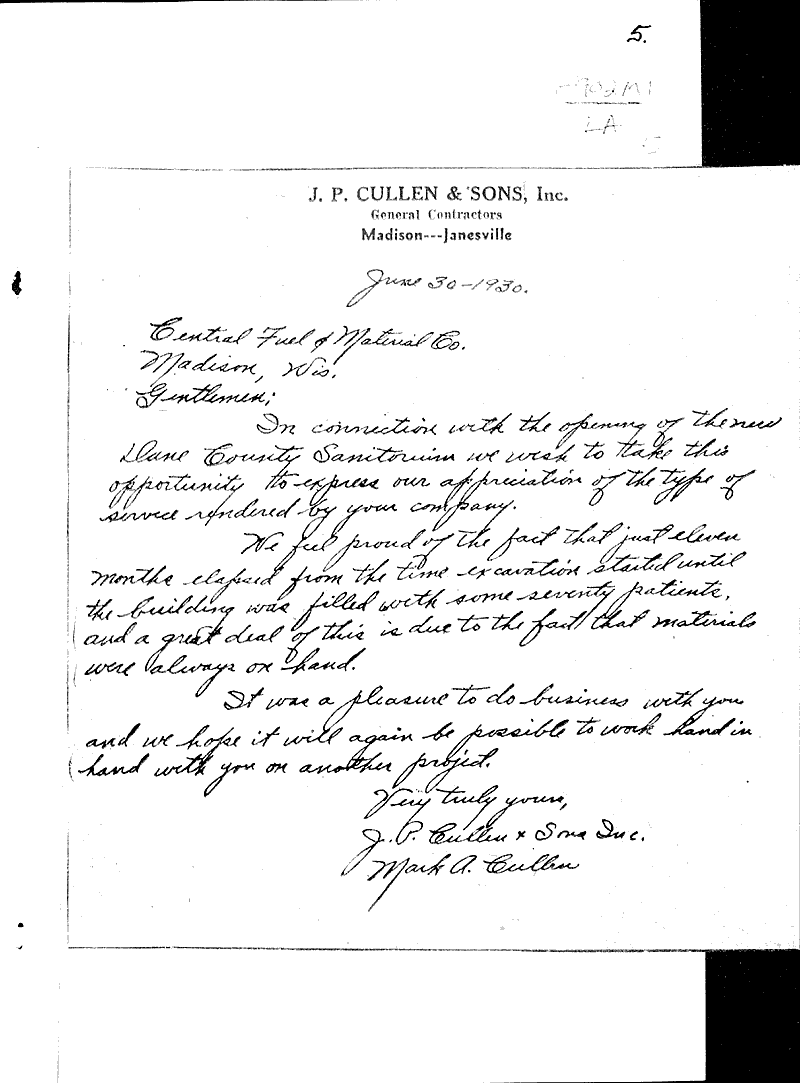 5.
LA
J. P. CULLEN & SONS, Inc.
General Contractors
Madison---Janesville
June 30-1930.
Central Fuel & Material Co.
Madison, Wis.
Gentlemen;
In connection with the opening of the new
Dane County Sanitorium we wish to take this
opportunity to express our appriciation of the type of
service rendered by your company.
We feel proud of the fact that just eleven
months elapsed from the time excavation started until
the building was filled with some seventy patients,
and a great deal of this is due to the fact that materials
were always on hand.
It was a pleasure to do business with you
and we hope it will again be possible to work hand in
hand with you on another project.
Very truly yours,
J. P. Cullen & Sons Inc.
Mark A. Cullen